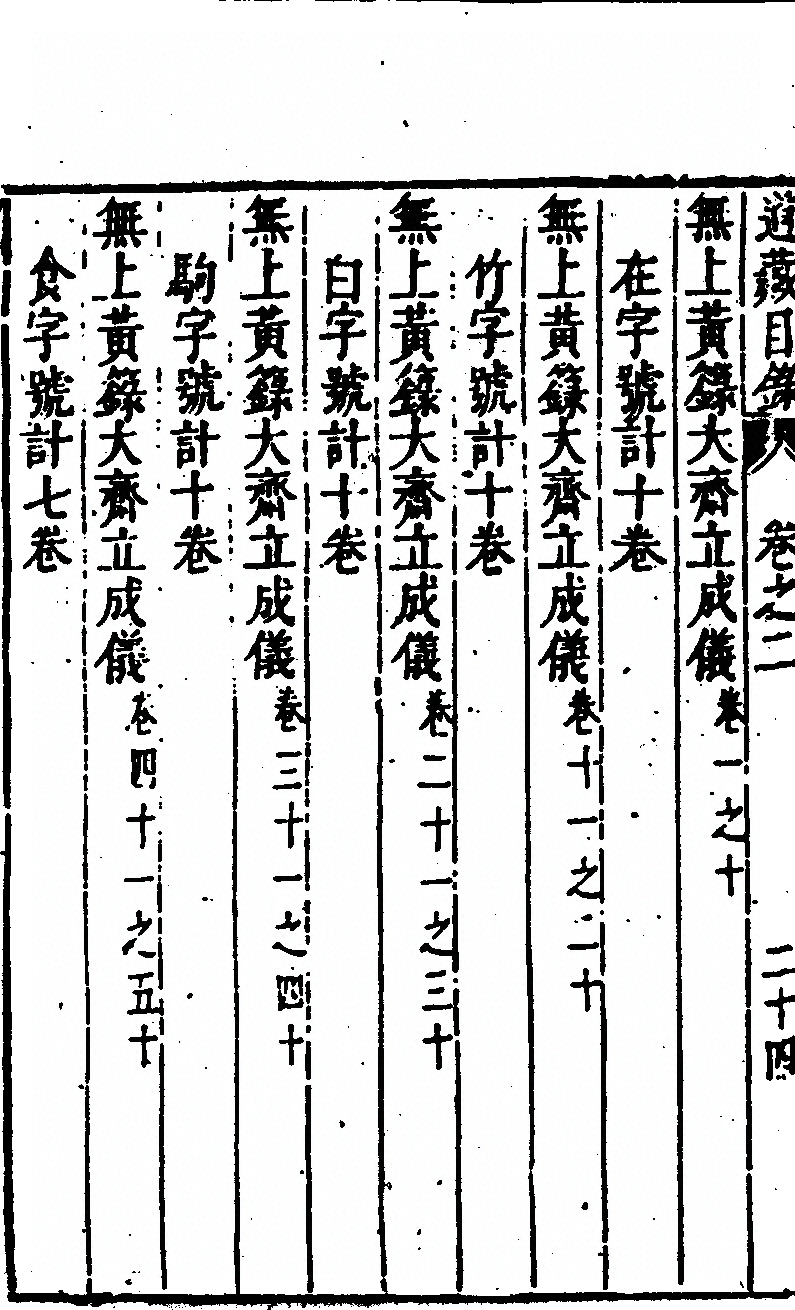 道藏目錄 卷之二 二十四
無上黃籙大齋立成儀卷一之十
在字號計十卷
無上黃籙大齋立成儀卷十一之二十
竹字號計十卷
無上黃籙大齋立成儀卷二十一之三十
白字號計十卷
無上黃籙大齋立成儀卷三十一之四十
駒字號計十卷
無上黃籙大齋立成儀卷四十一之五十
食字號計七卷